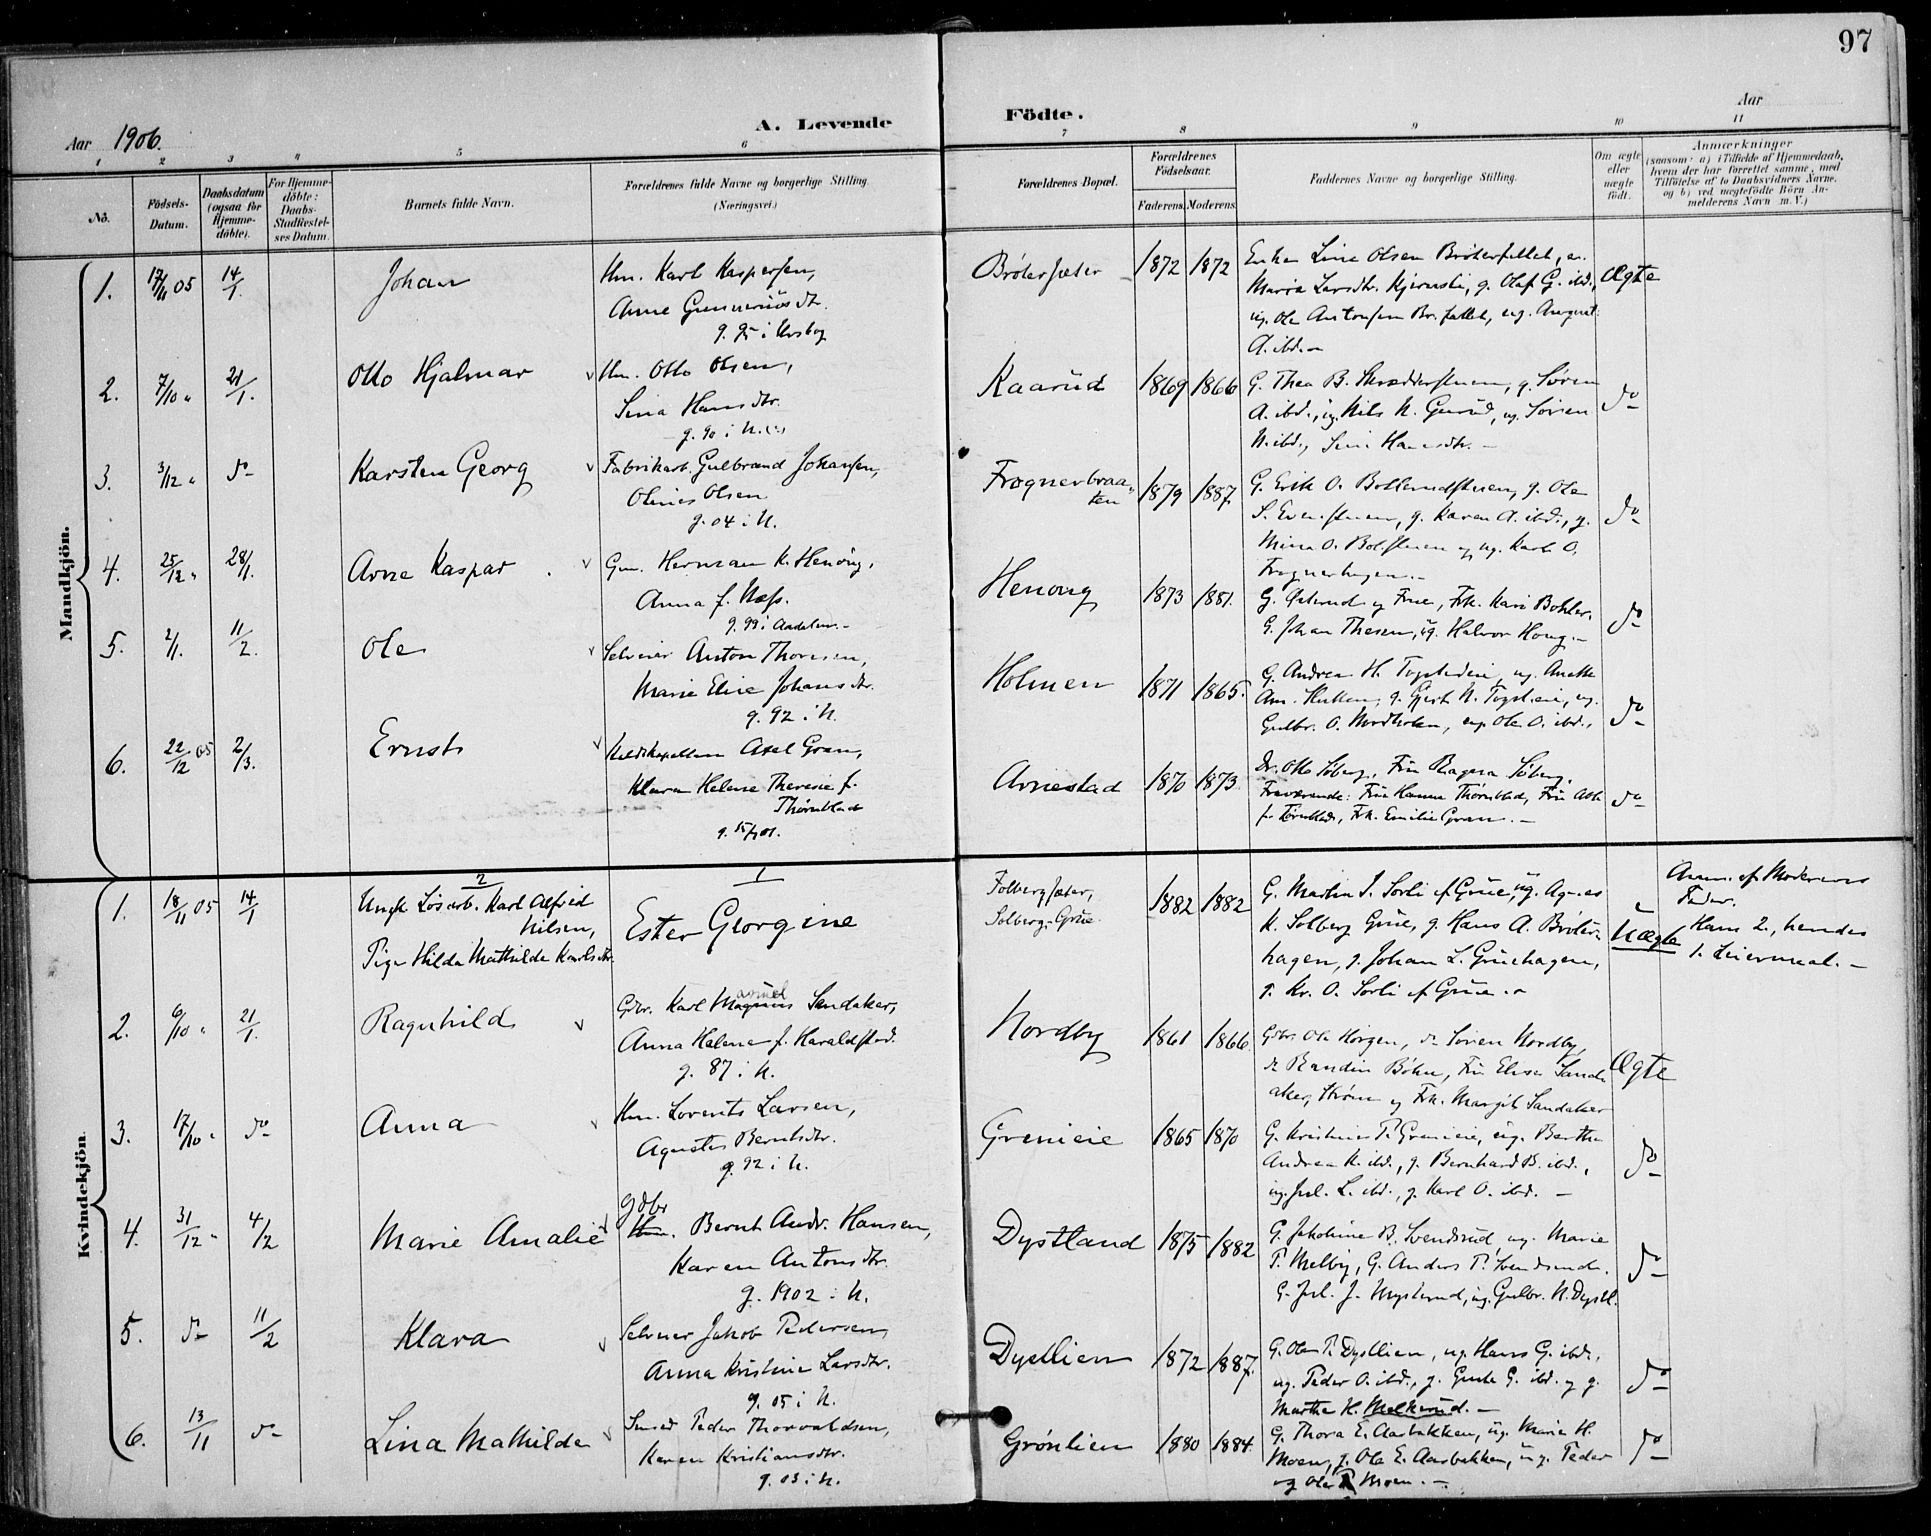 97
Aar 1906.
A. Levende Födte.
Aar
1 2 3 4 5 6 7 8 9 10 11
No.
Födsels-Datum.
Daabsdatum (ogsaa for Hjemme-döbte).
For Hjemme-döbte: Daabs-Stadfæstel-ses Datum.
Barnets fulde Navn.
Forældrenes fulde Navne og borgerlige Stilling.
(Næringsvei.)
Forældrenes Bopæl.
Forældrenes Födselsaar.
Faderens. Moderens.
Faddernes Navne og borgerlige Stilling.
Om ægte eller uægte födt.
Anmærkninger
(saasom: a) i Tilfælde af Hjemmedaab,
hvem der har forrettet samme, med
Tilföielse af to Daabsvidners Navne,
og b) ved uægtefödte Börn An-
melderens Navn m. V.)
Mandkjön.
1. 17/11 05 14/1. Johan
Hm. Karl Kaspersen,
Anne Gunneriusdtr.
g. 95 i
Bröterseter 1872 1872
Enken Line Olsen Bröterfallet,
Maria Larsdtr. g. Olaf G. ibd.,
ug. Ole Antonsen Br.fallet, ug. August
A. ibd. -
Ægte
2. 7/10 " 21/1. Otto Hjalmar
Hm. Otto Olsen,
Lina Hansdtr.
g. 90 i N.
Kaarud 1869 1866
G. Thea B. g. Søren
A. ibd., ug. Nils N. ug. Søren
N. ibd., Hansdtr. -
do
3. 3/12 " do Karsten Georg
Fabrikarb. Gulbrand Johansen,
Oline Olsen
g. 04 i N.
Frognerbraa-
ten 1879 1887.
G. Erik O. g. Ole
S. g. Karen A. ibd., g.
Mina O. og ug. Karl O.
Frognerhagen. -
do
4. 25/12 " 28/1. Arne Kaspar
Gm. Herman K. Henoug,
Anna f. Næss.
g. 99 i Aadalen. -
Henoug 1873 1881.
G. og Frue, Frk. Kari Bohler,
G. Johan Thesen, ug. Halvor Houg. -
do
5. 2/1. 11/2. Ole
Selveier Anton Thoresen,
Marie Elise Johansdtr.
g. 92 i N.
Holmen 1871 1865.
G. Andrea H. ug. Anette
Am. g. Gjert N. ug.
Gulbr. O. Nordholen, ug. Ole O. ibd.,
do
6. 22/12 05 2/3. Ernst
Axel Gran,
Klara Helene Therese f.
Thörnblad
g. 01.
Arnestad 1870 1873
Dr. Otto Soberg, Fru Ragna Soberg,
Fraværende: Fru Hanna Thörnblad, Fru
f. Thörnblad, Frk. Emilie Gran. -
do
Kvindekjön.
1. 18/11 05 14/1
2
Ungk. Lösarb. Karl Alfred
Nilsen,
Pige Hilda Mathilde Karlsdtr.
1
Ester Georgine
Solberg-Grue. 1882 1882
G. Martin J. Sorli af Grue, ug. Agnes
K. Solberg Grue, g. Hans A. Bröter-
hagen, g. Johan L. Gruehagen,
g. Kr. O. Sorli af Grue. -
Uægte
Anm. af Moderens
Fader.
Hans 2, hendes
1. Leiermaal. -
2. 6/10 " 21/1. Ragnhild
Gbr. Karl Magnus Sandaker,
Anna Helene f. Haraldstad.
g. 87 i N.
Nordby 1861 1866.
Gbr. Ole Horgen, do Søren Nordby,
do Randin Böhn, Fru Elise Sand-
aker, og Frk. Margit Sandaker
Ægte
3. 17/10 " do Anna
Hm. Lorents Larsen,
Agnete Berntsdtr.
g. 92 i N.
Grenieie 1865 1870
G. Kristine P. Grenieie, ug. Berthe
Andrea K. ibd., g. Bernhard B. ibd.,
ug. Jul. L. ibd., g. Karl O. ibd. -
do
4. 31/12 " 4/2 Marie Amalie
Gdbr
Hm. Bernt Andr. Hansen,
Karen Antonsdtr.
g. 1902 i N.
Dystland 1875 1882
G. Jakobine B. Svendsrud ug. Marie
P. Melby, G. Anders P. Svendsrud.
G. Jul. J. ug. Gulbr. N. Dystl.
do
5. do 11/2 Klara
Selveier Jakob Pedersen,
Anna Kristine Larsdtr.
g. 05 i N.
Dystlien 1872 1887.
G. Ole P. Dystlien, ug. Hans G. ibd.,
ug. Peder O. ibd., g. G. ibd. og g.
Marthe K. Melkerud. -
do
6. 13/11 do Lina Mathilde
Peder Thorvaldsen,
Karen Kristiansdtr.
g. 03 i N.
Grönlien 1880 1884.
G. Thora E. Aasbakken, ug. Marie H.
Moen, g. Ole E. Aasbakken, ug. Peder
og Ole Moen. -
do